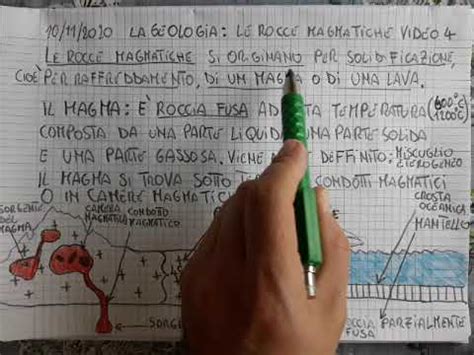 10/11/2020 LA GEOLOGIA: LE ROCCE MAGMATICHE VIDEO 4
LE ROCCE MAGMATICHE SI ORIGINANO PER SOLIDIFICAZIONE,
CIOÈ PER RAFFREDDAMENTO, DI UN MAGMA O DI UNA LAVA.
IL MAGMA: È ROCCIA FUSA AD TEMPERATURA (600°C 1200°C)
COMPOSTA DA UNA PARTE LIQUIDA UNA PARTE SOLIDA
E UNA PARTE GASSOSA. VIENE DEFINITO: MISCUGLIO ETEROGENEO
IL MAGMA SI TROVA SOTTO CONDOTTI MAGMATICI
O IN CAMERE MAGMATICHE
SORGENTE DEL MAGMA
CAMERA MAGMATICA
CONDOTTO MAGMATICO
CROSTA OCEANICA
MANTELLO
ROCCIA PARZIALMENTE FUSA